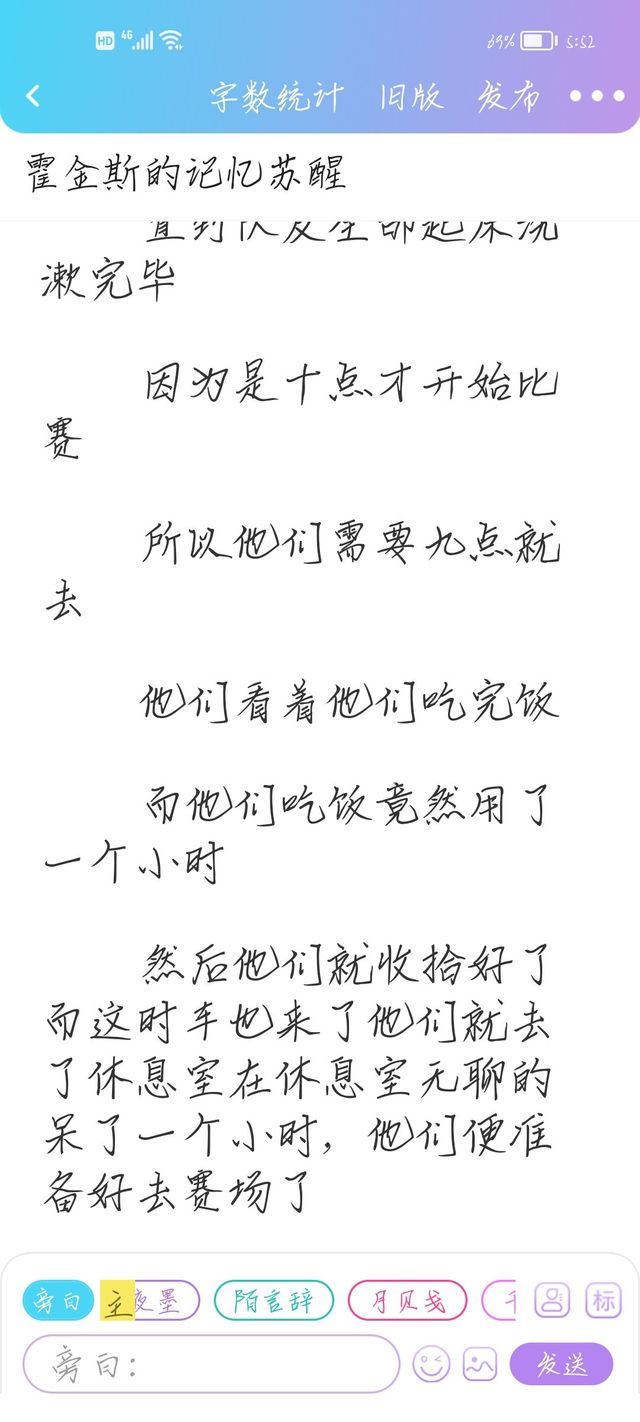 HD 4G 69% 5:52
字数统计 旧版 发布
霍金斯的记忆苏醒
直到队友全部起床洗
漱完毕
因为是十点才开始比
赛
所以他们需要九点就
去
他们看着他们吃完饭
而他们吃饭竟然用了
一个小时
然后他们就收拾好了
而这时车也来了他们就去
了休息室在休息室无聊的
呆了一个小时，他们便准
备好去赛场了
旁白 主 夜墨 陌言辞 月贝戋 标
旁白：
发送